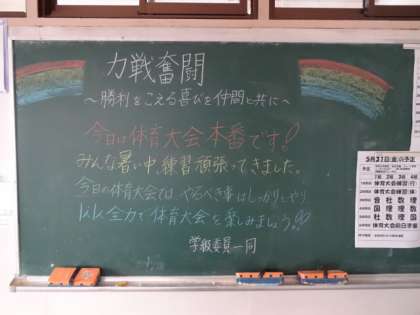 力戦奮闘
～勝利をこえる喜びを仲間と共に～
今日は体育大会本番です!!
みんな暑い中、練習頑張ってきました。
今日の体育大会では、やるべき事はしっかりとやり
全力で体育大会を楽しみましょう!!
学級委員一同
5月31日(金)の予定
1 2 3 4
体育大会練習(行)
体育大会練習(体)
会社数理
国理理数
社数国理
体育大会前日準備